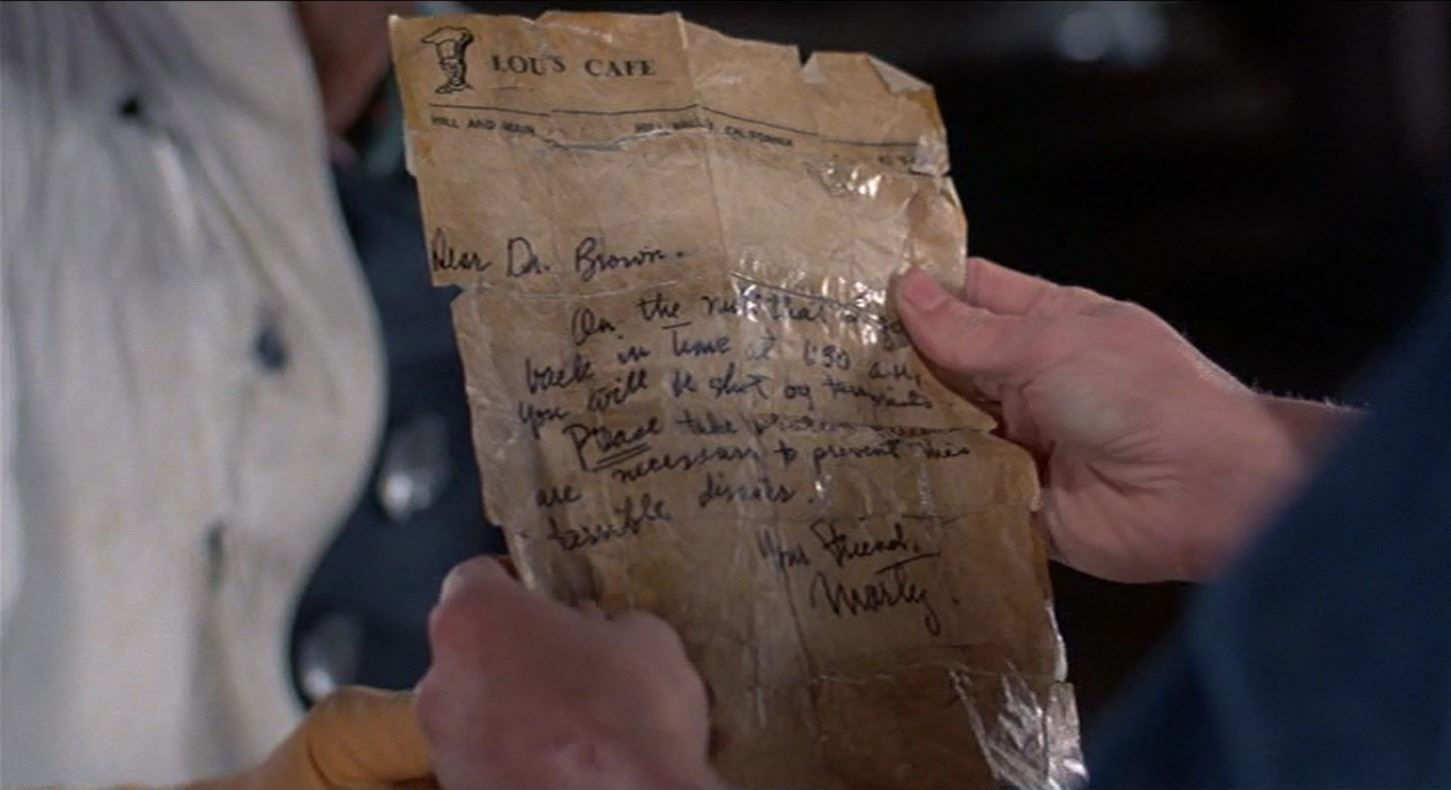 LOU'S CAFE
HILL AND MAIN HILL VALLEY, CALIFORNIA
Dear Dr. Brown.
On the that
back in time at 1:30 a.m,
you will be shot by terrorists
Please take
are necessary to prevent this
terrible
Your Friend,
Marty.